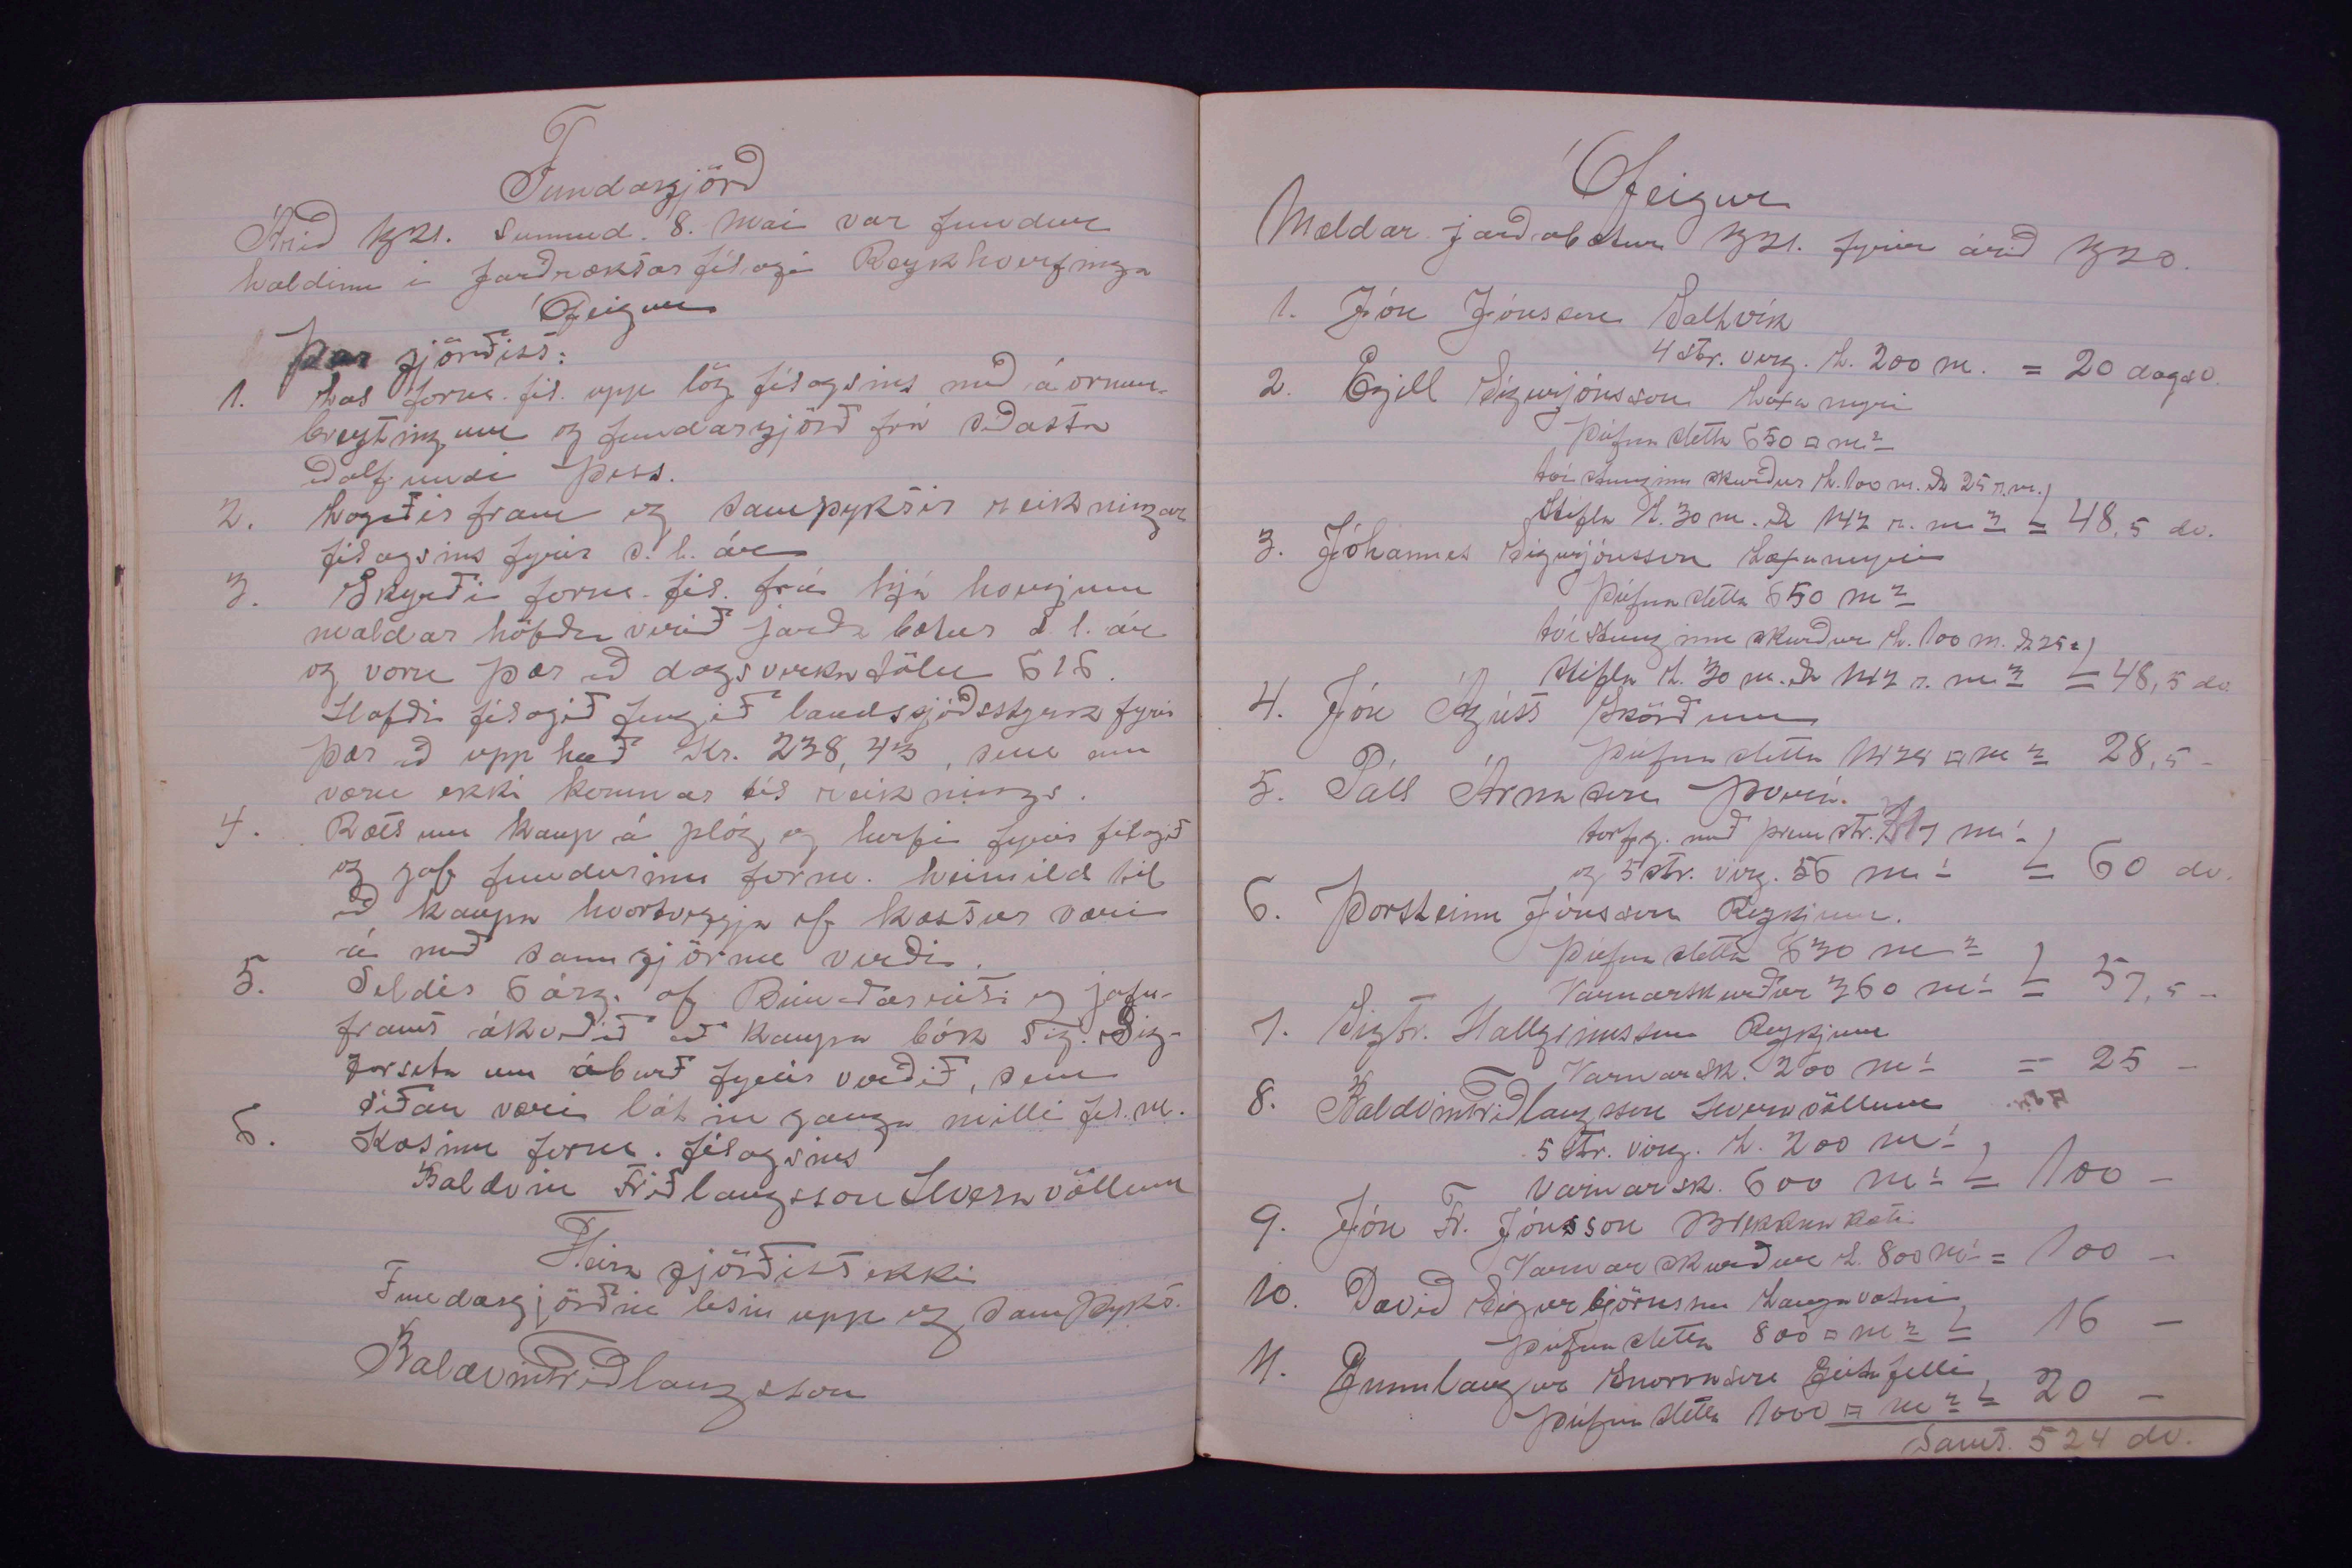 Fundargjörð
Árið 1921. Sunnud. 8. maí var fundur
haldinn í Jarðræktarfélagi Reykhverfinga
Ófeigur
Þar gjörðist:
1. Las form. fél. upp lög félagsins með áorðnum
breytingum og fundargjörð frá síðasta
aðalfundi þess.
2. Lagðir fram og samþyktir reikningar
félagsins fyrir s.l. ár
3. Skýrði form. fél. frá hjá hverjum
mældar höfðu verið jarðabætur s.l. ár
og voru þær að dagsverkatölu 616.
Hafði félagið fengið landssjóðsstyrk fyrir
þær að upphæð Kr. 238,43, sem nú
væru ekki komnar til reiknings.
4. Rætt um kaup á plóg og herfi fyrir félagið
og gaf fundurinn form. heimild til
að kaupa hvortveggja ef kostur væri
á með sanngjörnu verði.
5. Seldir 6 árg. af Búnaðarriti og jafn-
framt ákveðið að kaupa bók Sig. Sig-
forseta um áburð fyrir verðið, sem
síðan væri látin ganga milli fél.m.
6. Kosinn form. félagsins
Baldvin Friðlaugsson Hveravöllum
Fleira gjörðist ekki
Fundargjörðin lesin upp og samþykt.
Baldvin Friðlaugsson
Ófeigur
Mældar jarðabætur 1921. fyrir árið 1920.
1. Jón Jónsson Saltvík
4 str. virg. L. 200 m. = 20 dagsv.
2. Egill Sigurjónsson Laxamýri
Þúfnaslétta 650 □ m =
tvístunginn skurður L. 100 m. á 25 r.m.
Stífla L. 30 m. á 142 r. m = 48,5 dv.
3. Jóhannes Sigurjónsson Laxamýri
Þúfnaslétta 650 m =
tvístunginn skurður L. 100 m. á 25
Stífla L. 30 m. á 142 r. m = 48,5 dv.
4. Jón Ágúst Skörðum
Þúfnaslétta 1424 □ m = 28,5 -
5. Páll Árnason Þverá.
torfg. með þrem str. 317 m -
og 5 str. virg. 56 m - = 60 dv.
6. Þorsteinn Jónsson Reykjum.
Þúfnaslétta 630 m =
Varnarskurður 360 m - = 57,5 -
7. Sigtr. Hallgrímsson Reykjum
Varnarsk. 200 m - = 25 -
8. Baldvin Friðlaugsson Hveravöllum
5 str. virg. L. 200 m -
Varnarsk. 600 m - = 100 -
9. Jón Fr. Jónsson Brekknakoti
Varnarskurður L. 800 m - = 100 -
10. Davíð Sigurbjörnsson Langavatni
Þúfnaslétta 800 □ m = 16 -
11. Gunnlaugur Snorrason Geitafelli
Þúfnaslétta 1000 □ m = 20 -
Samt. 524 dv.